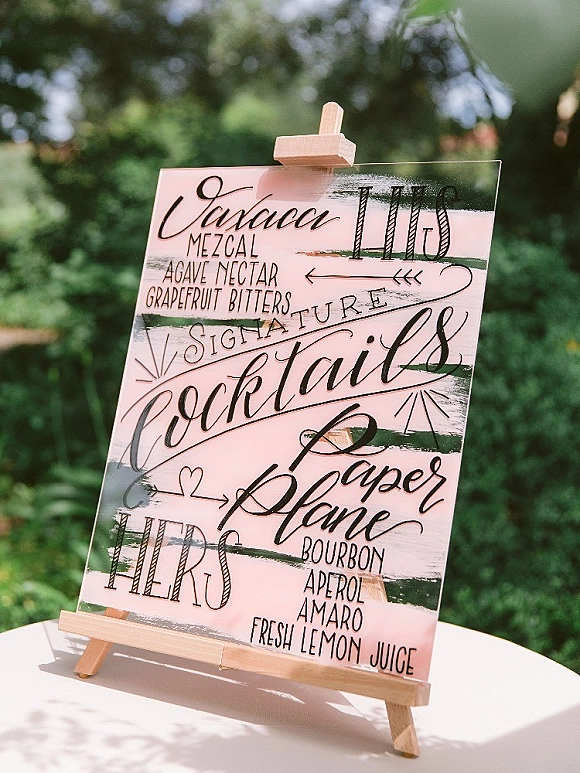 Oaxaca
HIS
MEZCAL
AGAVE NECTAR
GRAPEFRUIT BITTERS
SIGNATURE
Cocktails
Paper
Plane
HERS
BOURBON
APEROL
AMARO
FRESH LEMON JUICE